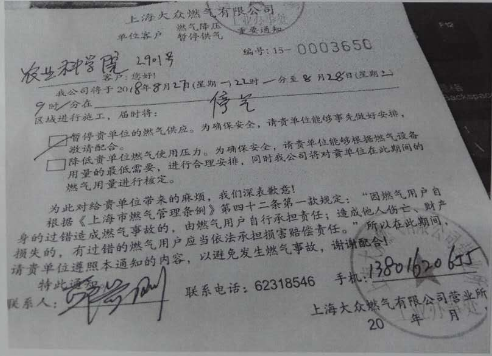 上海大众燃气有限公司
单位客户 燃气降压 暂停供气 重要通知
编号:15-0003650
农业科学院 2901号
客户:您好!
我公司将于2018年8月27日(星期一)22时 分至8月28日(星期二)
9时 分在 停气
区域进行施工,届时将:
暂停贵单位的燃气供应。为确保安全,请贵单位能够事先做好安排,
敬请配合。
降低贵单位燃气使用压力。为确保安全,请贵单位能够根据燃气设备
用量的最低需要,进行合理安排,同时我公司将对贵单位在此期间的
燃气用量进行核定。
为此对给贵单位带来的麻烦,我们深表歉意!
根据《上海市燃气管理条例》第四十二条第一款规定:“因燃气用户自
身的过错造成燃气事故的,由燃气用户自行承担责任;造成他人伤亡、财产
损失的,有过错的燃气用户应当依法承担损害赔偿责任。”所以在此期间,
请贵单位遵照本通知的内容,以避免发生燃气事故,谢谢配合!
特此通
联系人: 联系电话:62318546 手机:13801620655
上海大众燃气有限公司营业所
20 年 月
backspace